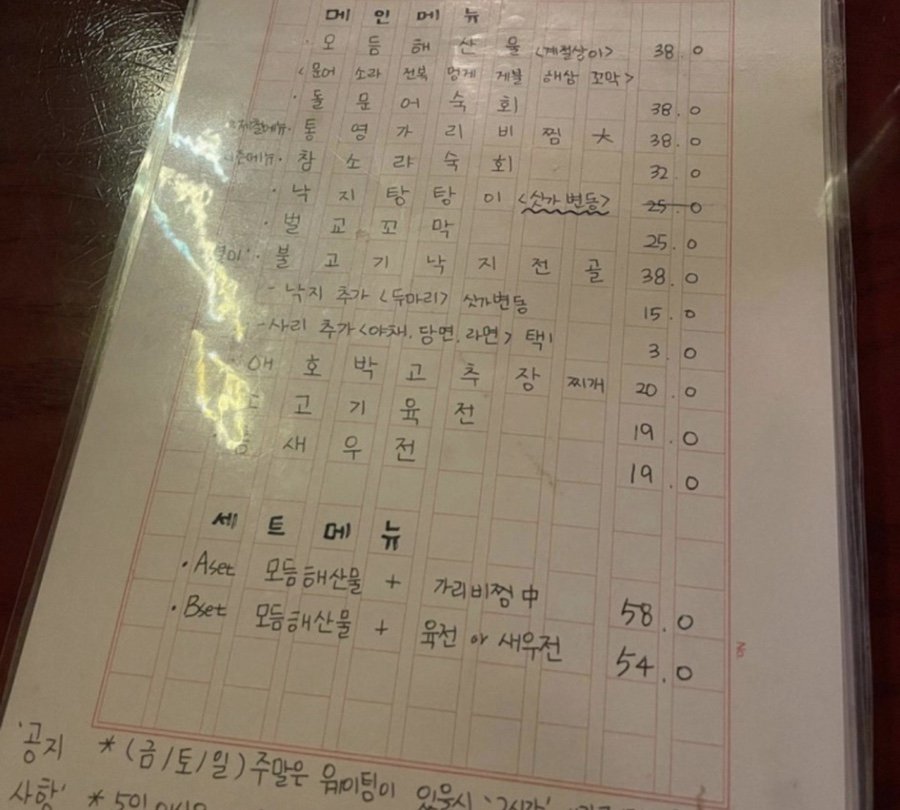 메인메뉴
· 모듬해산물 <계절상이> 38.0
<문어 소라 전복 멍게 개불 해삼 꼬막>
· 돌문어숙회 38.0
제철메뉴· 통영가리비찜 大 38.0
· 참소라숙회 32.0
· 낙지탕탕이 <싯가변동> 25.0
· 벌교꼬막 25.0
· 불고기낙지전골 38.0
- 낙지 추가 <두마리> 싯가변동 15.0
- 사리 추가 <야채, 당면, 라면> 택1 3.0
· 애호박고추장찌개 20.0
고기육전 19.0
새우전 19.0
세트메뉴
· Aset 모듬해산물 + 가리비찜 中 58.0
· Bset 모듬해산물 + 육전 or 새우전 54.0
'공지 * (금/토/일) 주말은 웨이팅이 있을시 '2시간'
사항' * 5인이상